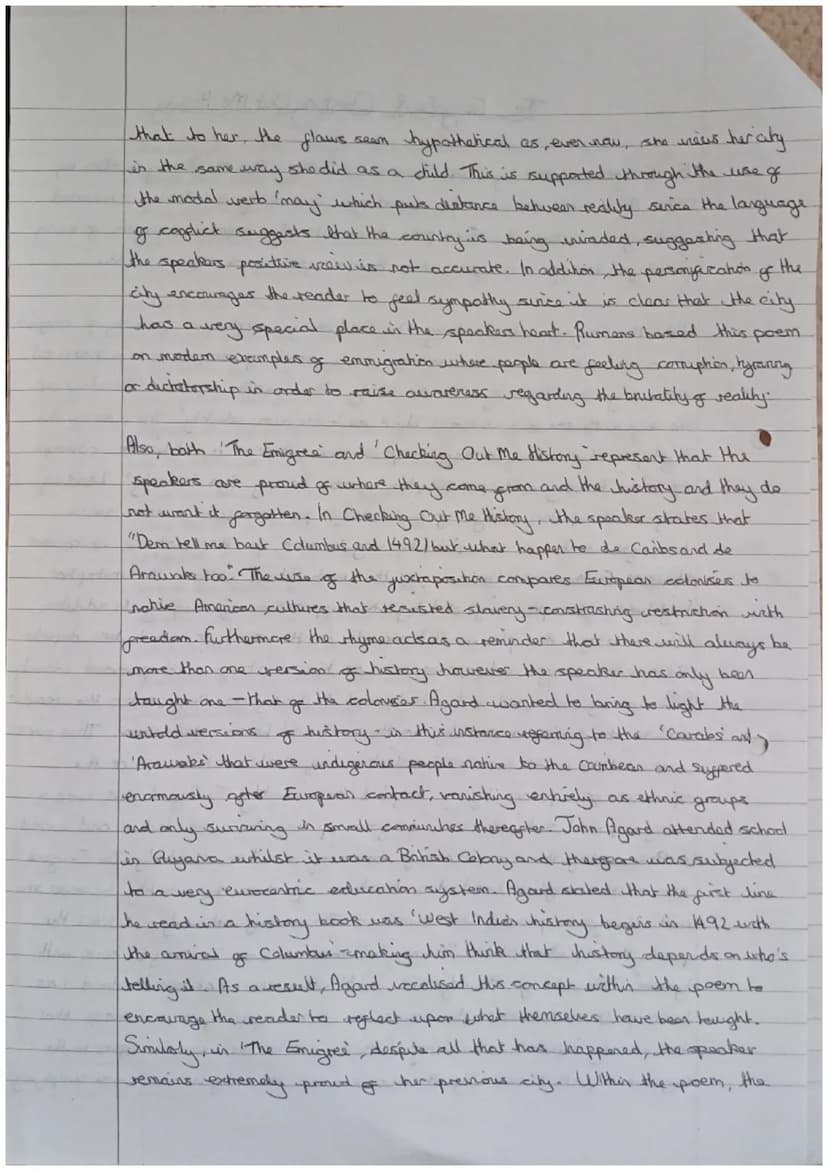 that to her, the flaws seem hypothetical as, even now, she views her city
in the same way she did as a child. This is supported through the use of
the modal verb 'may' which puts distance between reality since the language
of conflict suggests that the country is being invaded, suggesting that
the speakers positive view is not accurate. In addition, the personification of the
city encourages the reader to feel sympathy since it is clear that the city
has a very special place in the speakers heart. Rumens based this poem
on modern examples of emmigration where people are feeling corruption, tyranny
or dictatorship in order to raise awareness regarding the brutality of reality.
Also, both 'The Emigree' and 'Checking Out Me History' represent that the
speakers are proud of where they come from and the history and they do
not want it forgotten. In Checking Out Me History, the speaker states that
"Dem tell me bout Columbus and 1492/but what happen to de Caribs and de
Arawaks too." The use of the juxtaposition compares European colonises to
native American cultures that resisted slavery - constrashing restriction with
freedom. Furthermore the rhyme acts as a reminder that there will always be
more than one version of history however the speaker has only been
taught one - that of the colonises. Agard wanted to bring to light the
untold versions of history - in this instance referring to the 'Carabs' and
'Arawaks' that were indigenous people native to the Caribbean and suffered
enormously after European contact, vanishing entirely as ethnic groups
and only surviving in small communities thereafter. John Agard attended school
in Guyana whilst it was a British Colony and therefore was subjected
to a very eurocentric education system. Agard stated that the first line
he read in a history book was 'West Indien history begins in 1492 with
the arrival of Columbus' - making him think that history depends on who's
telling it. As a result, Agard vocalised this concept within the poem to
encourage the reader to reflect upon what themselves have been taught.
Similarly, in 'The Emigree', despite all that has happened, the speaker
remains extremely proud of her previous city. Within the poem, the